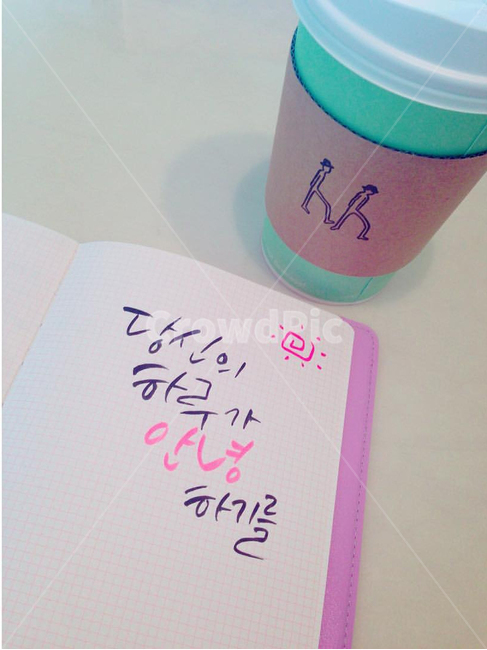 당신의
하루가
안녕
하기를
CrowdPic